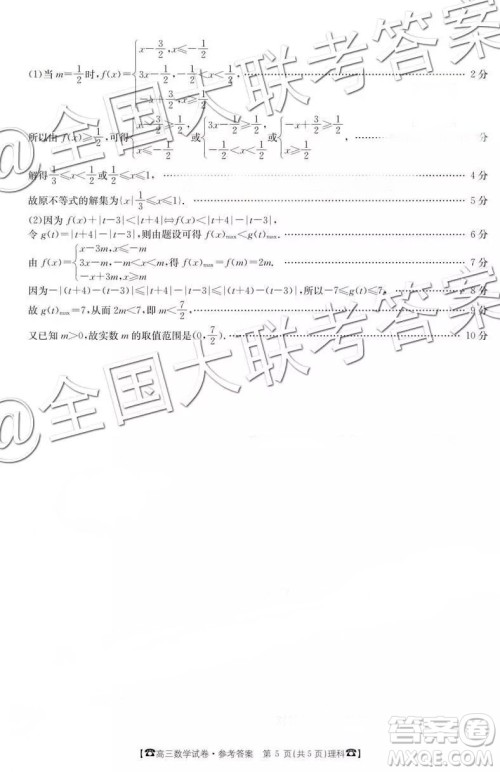 (1)当 m=1/2 时,f(x)={x-3/2,x≤-1/2
3x-1/2,-1/2<x<1/2 2分
-x+3/2,x≥1/2
所以由 f(x)≥1/2,可得{x-3/2≥1/2 x≤-1/2 或{3x-1/2≥1/2 -1/2<x<1/2 或{-x+3/2≥1/2 x≥1/2, 分
解得1/3≤x<1/2或1/2≤x≤1, 4分
故原不等式的解集为{x|1/3≤x≤1}. 5分
(2)因为 f(x)+|t-3|<|t+4|⇔f(x)<|t+4|-|t-3|,
令 g(t)=|t+4|-|t-3|,则由题设可得 f(x)max<g(t)max. 6分
由 f(x)={x-3m,x≤-m
3x-m,-m<x<m,得 f(x)max=f(m)=2m. 7分
-x+3m,x≥m
因为-|(t+4)-(t-3)|≤|t+4|-|t-3|≤|(t+4)-(t-3)|,所以-7≤g(t)≤7, 8分
故 g(t)max=7,从而 2m<7,即 m<7/2. 9分
又已知 m>0,故实数 m 的取值范围是(0,7/2). 10分
@全国大联考答案
@全国大联考答案
【☎高三数学试卷·参考答案 第5页(共5页)理科☎】
答案圈
MXQE.COM